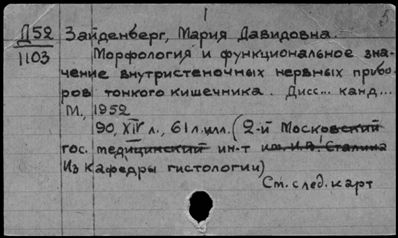 1
5
Д52 Зайденберг, Мария Давидовна.
1103 Морфология и функциональное зна-
чение внутристеночных нервных прибо-
ров тонкого кишечника. Дисс... канд...
М., 1952
90, XIV л., 61 л. илл. (2-й Московский
гос. медицинский ин-т им. И.В. Сталина
Из кафедры гистологии)
См. след. карт